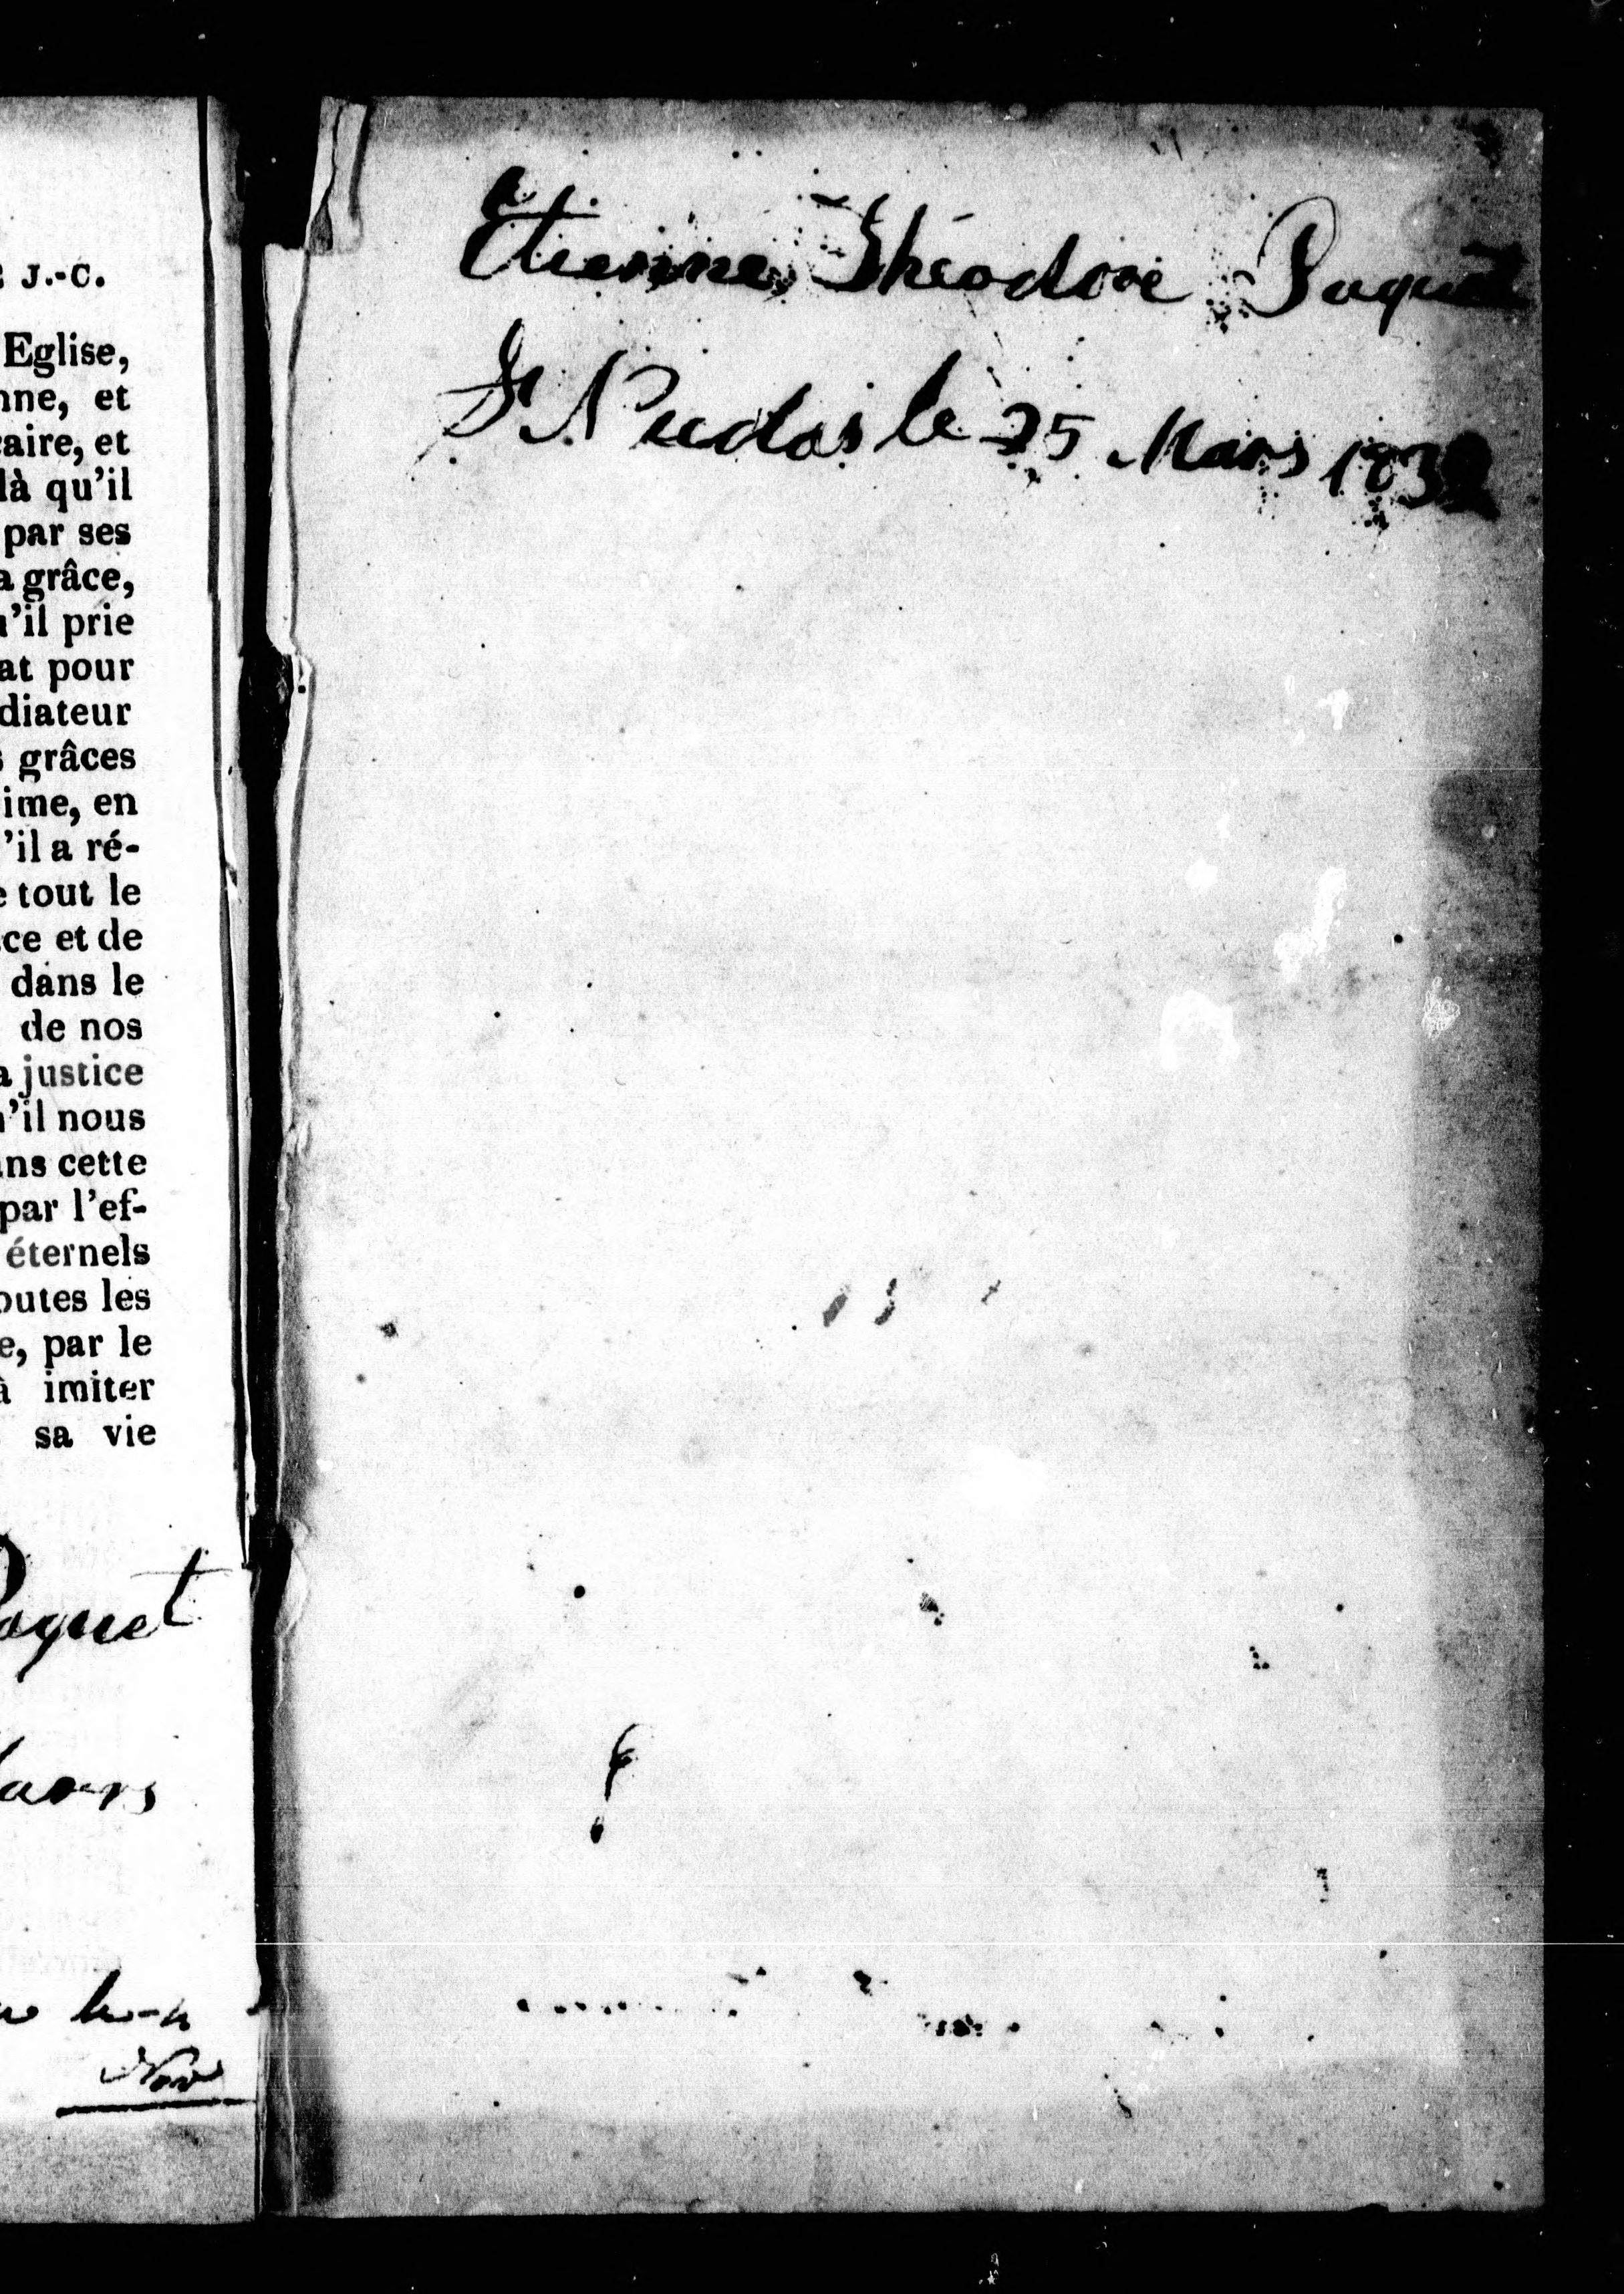 J.-C.
Eglise,
nne, et
aire, et
là qu'il
par ses
a grâce,
'il prie
at pour
diateur
s grâces
ime, en
'il a ré-
e tout le
ce et de
dans le
de nos
a justice
'il nous
ns cette
par l'ef-
éternels
outes les
e, par le
à imiter
sa vie
Paquet
Etienne Théodore Paquet
St Nicolas le 25 Mars 183